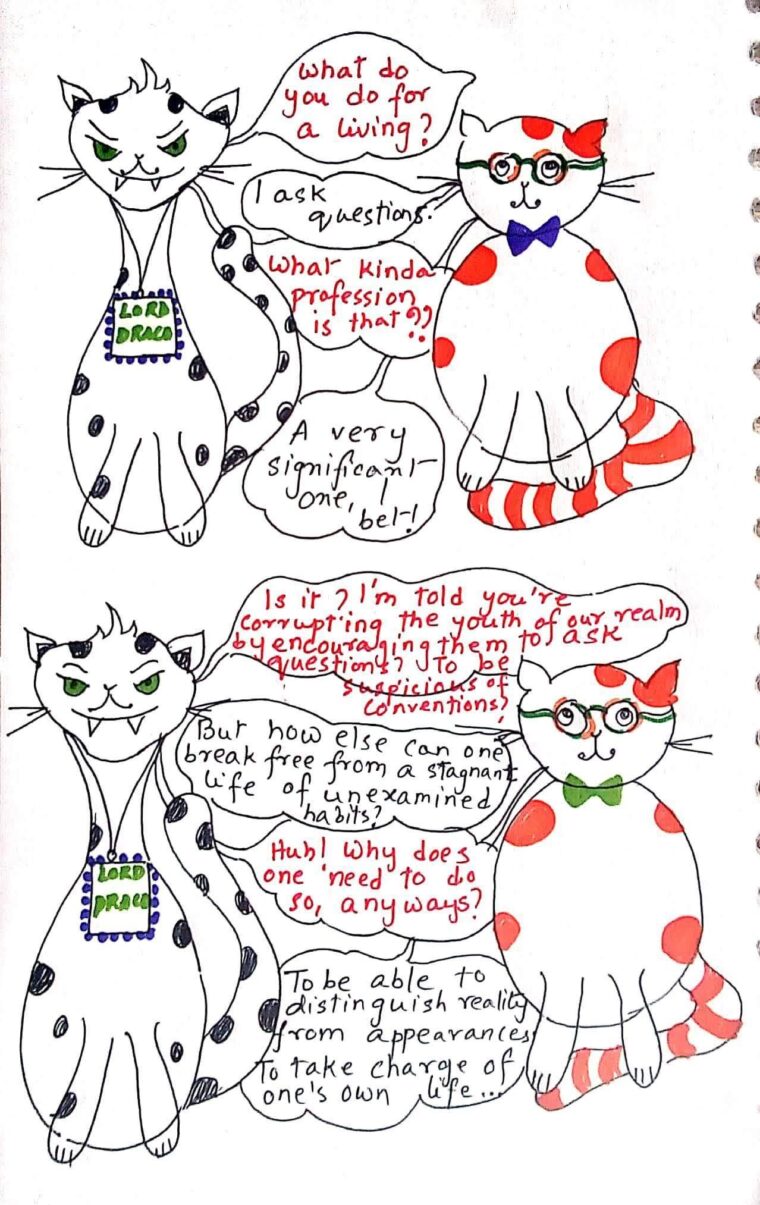 What do
you do for
a living?
I ask
questions.
What kinda
profession
is that??
LORD
DRACO
A very
significant
one, I
bet!
Is it? I'm told you're
corrupting the youth of our realm
by encouraging them to ask
questions? To be
suspicious of
conventions?
But how else can one
break free from a stagnant
life of unexamined
habits?
Huh! Why does
one 'need' to do
so, anyways?
LORD
DRACO
To be able to
distinguish reality
from appearances
To take charge of
one's own life...